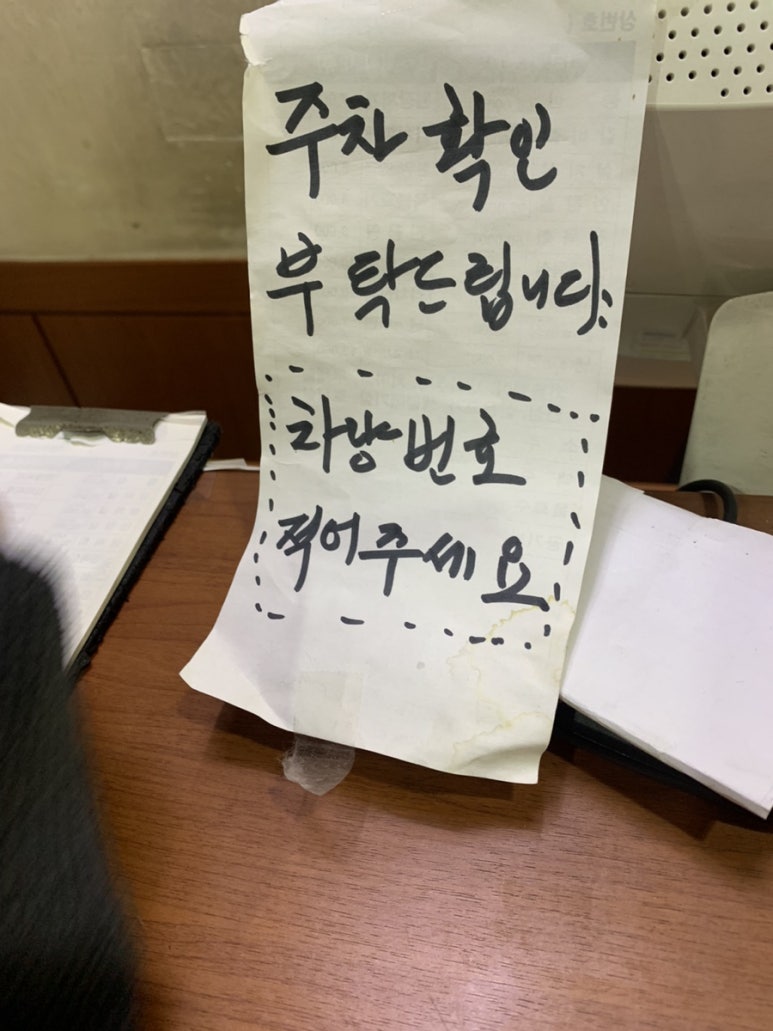 주차 확인
부탁드립니다.
차량번호
적어주세요